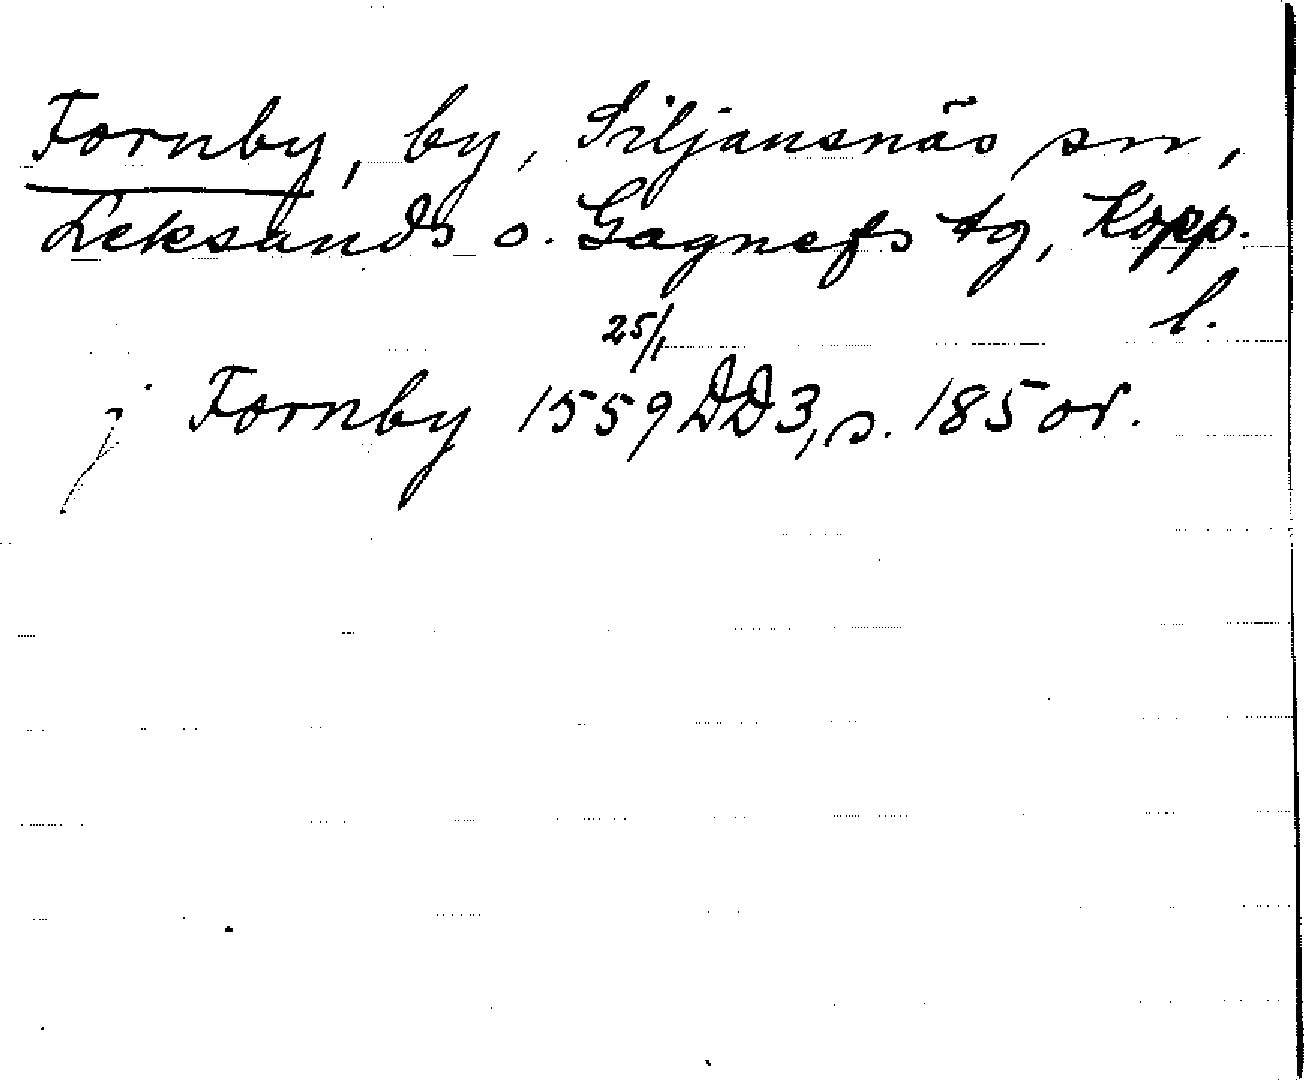 Fornby, by, Siljansnäs sn,
Leksands o. Gagnefs tg, Kopp.
l.
25/1
j Fornby 1559 DD3, s. 185 or.